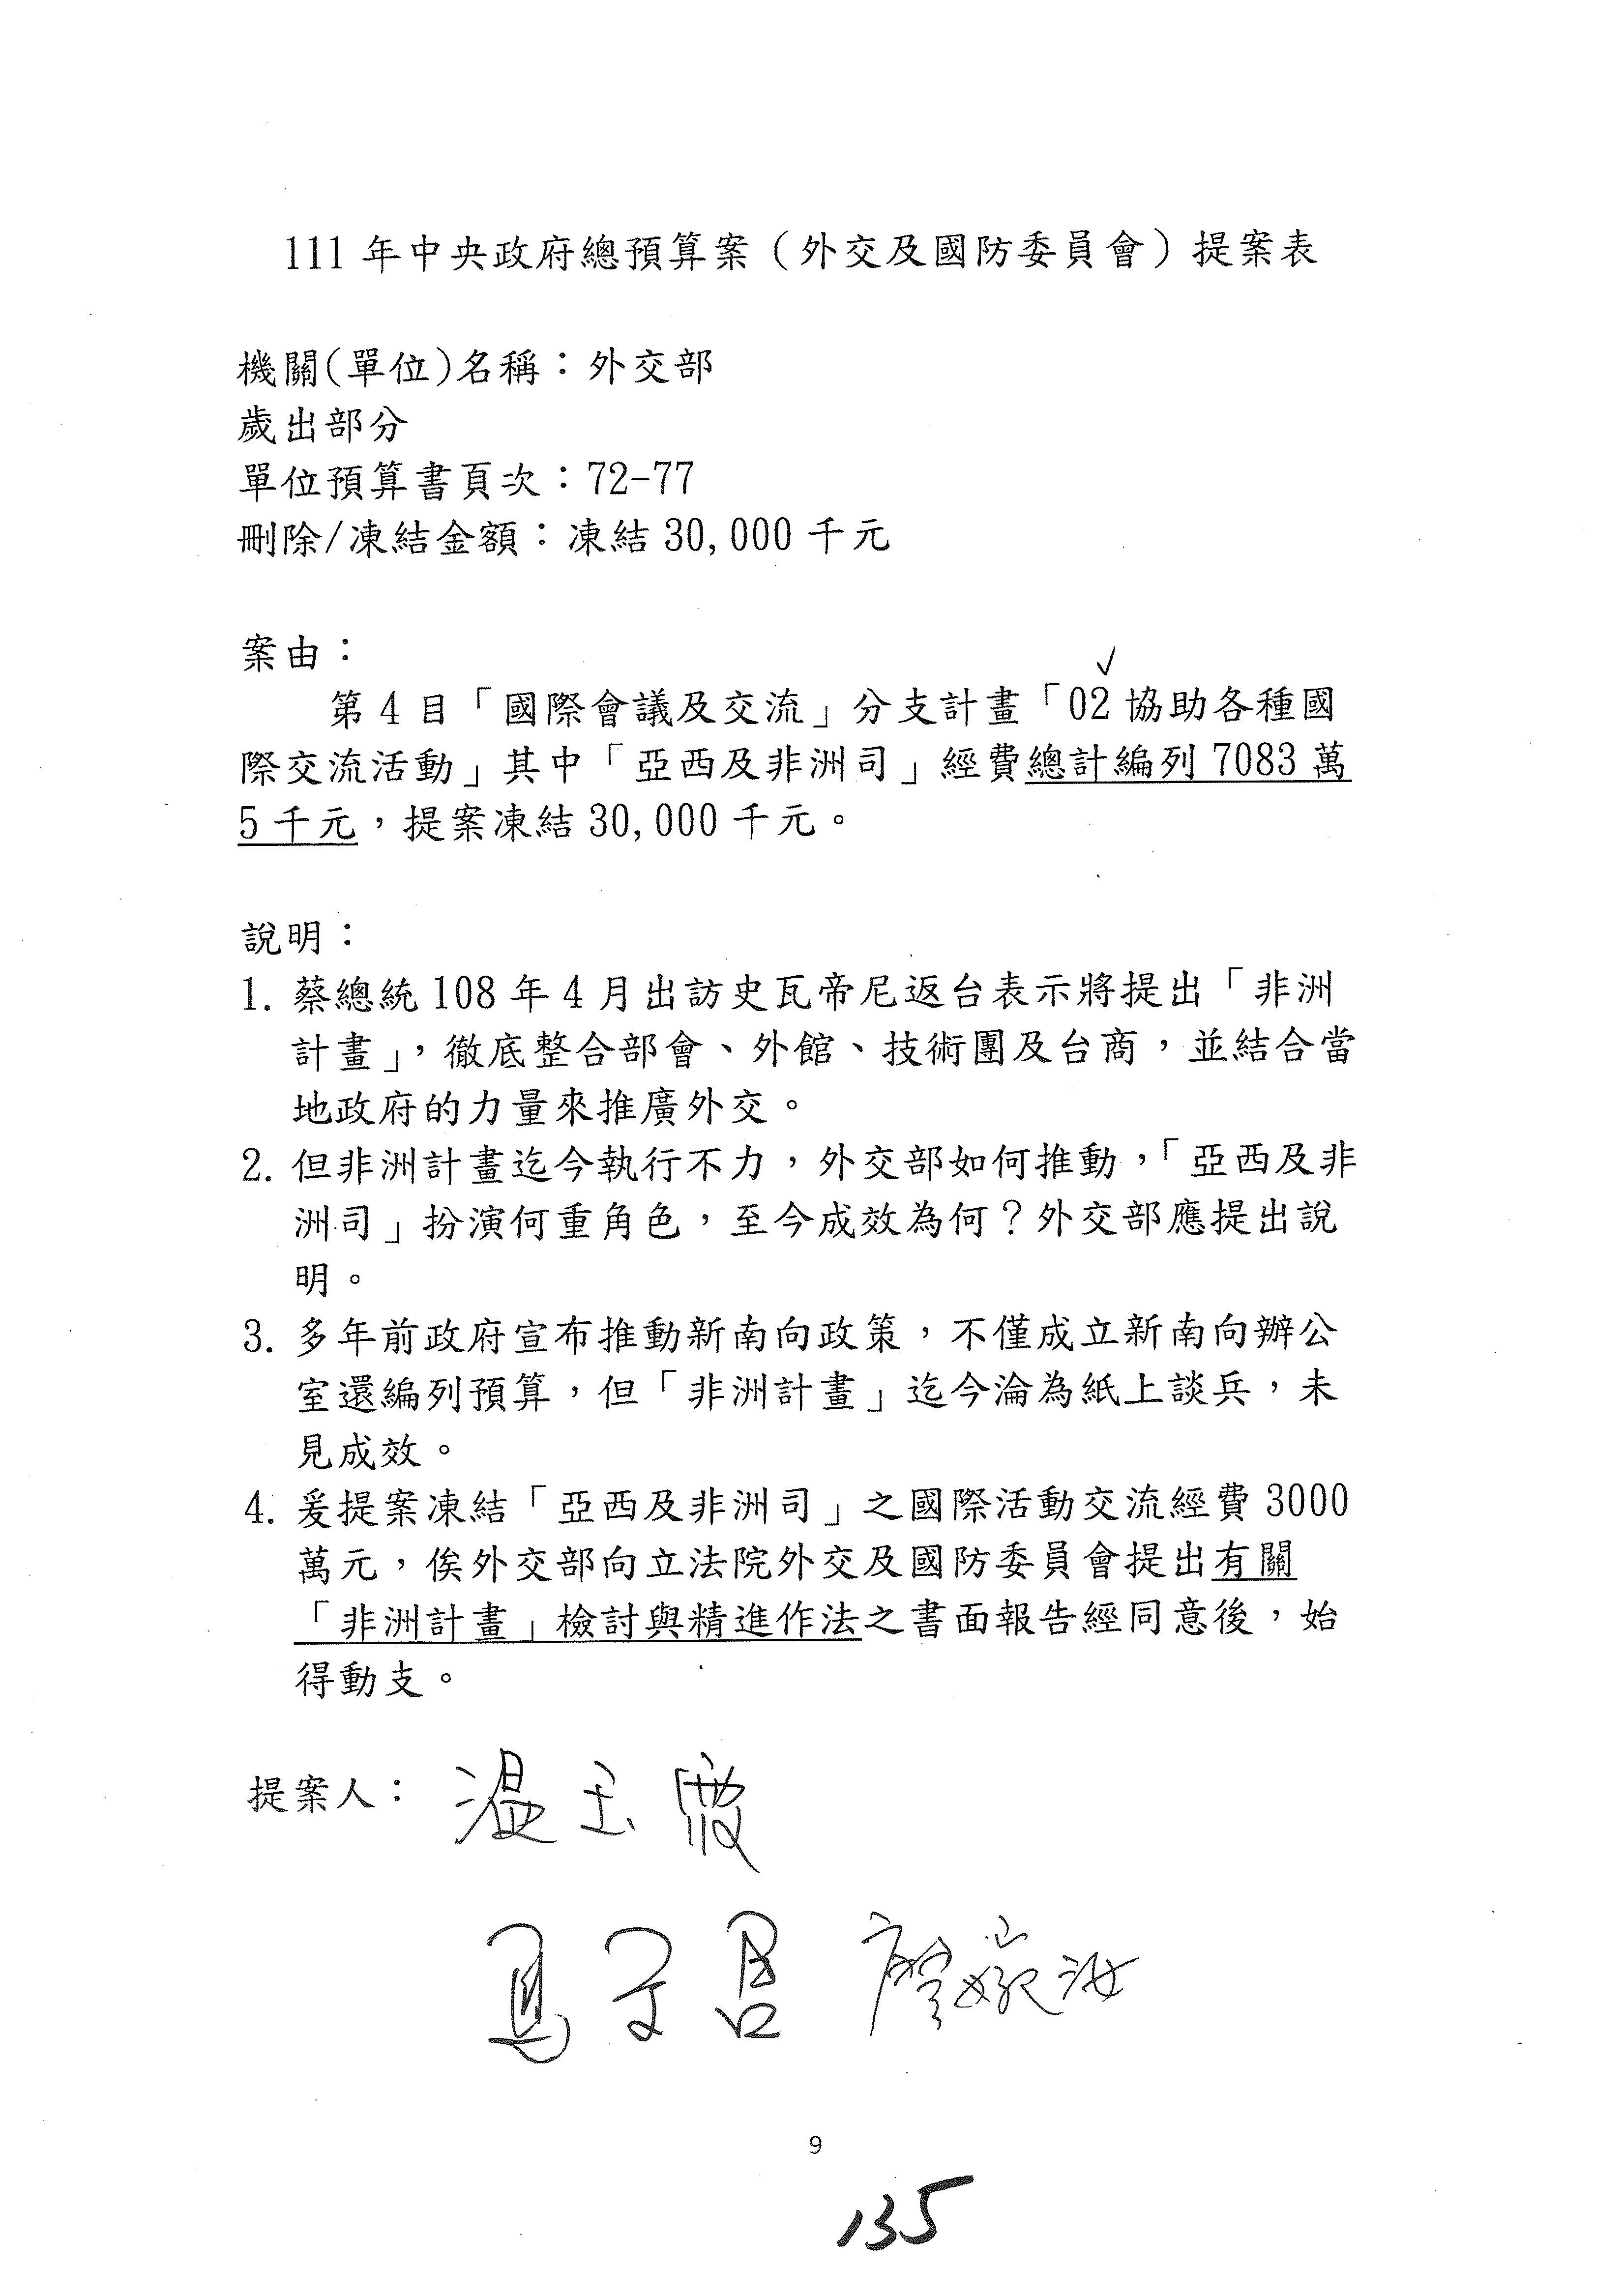 111年中央政府總預算案（外交及國防委員會）提案表
機關(單位)名稱：外交部
歲出部分
單位預算書頁次：72-77
刪除/凍結金額：凍結30,000千元
案由：
第4目「國際會議及交流」分支計畫「02協助各種國
際交流活動」其中「亞西及非洲司」經費總計編列7083萬
5千元，提案凍結30,000千元。
說明：
1. 蔡總統108年4月出訪史瓦帝尼返台表示將提出「非洲
計畫」，徹底整合部會、外館、技術團及台商，並結合當
地政府的力量來推廣外交。
2. 但非洲計畫迄今執行不力，外交部如何推動，「亞西及非
洲司」扮演何重角色，至今成效為何？外交部應提出說
明。
3. 多年前政府宣布推動新南向政策，不僅成立新南向辦公
室還編列預算，但「非洲計畫」迄今淪為紙上談兵，未
見成效。
4. 爰提案凍結「亞西及非洲司」之國際活動交流經費3000
萬元，俟外交部向立法院外交及國防委員會提出有關
「非洲計畫」檢討與精進作法之書面報告經同意後，始
得動支。
提案人：溫玉霞
馬文君 廖婉汝
9
135